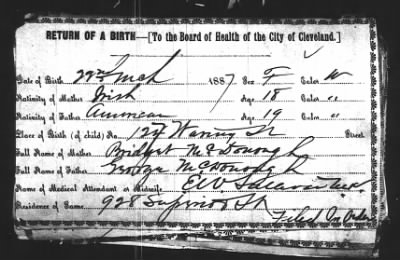 RETURN OF A BIRTH—[To the Board of Health of the City of Cleveland.]
Date of Birth 1887 Sex F Color W
Nativity of Mother Irish Age 18 Color "
Nativity of Father American Age 19 Color "
Place of Birth (of child) No. 124 Street
Full Name of Mother Bridget McDonough
Full Name of Father George McDonough
Name of Medical Attendant or Midwife
Residence of Same, 928 Superior St
Filed